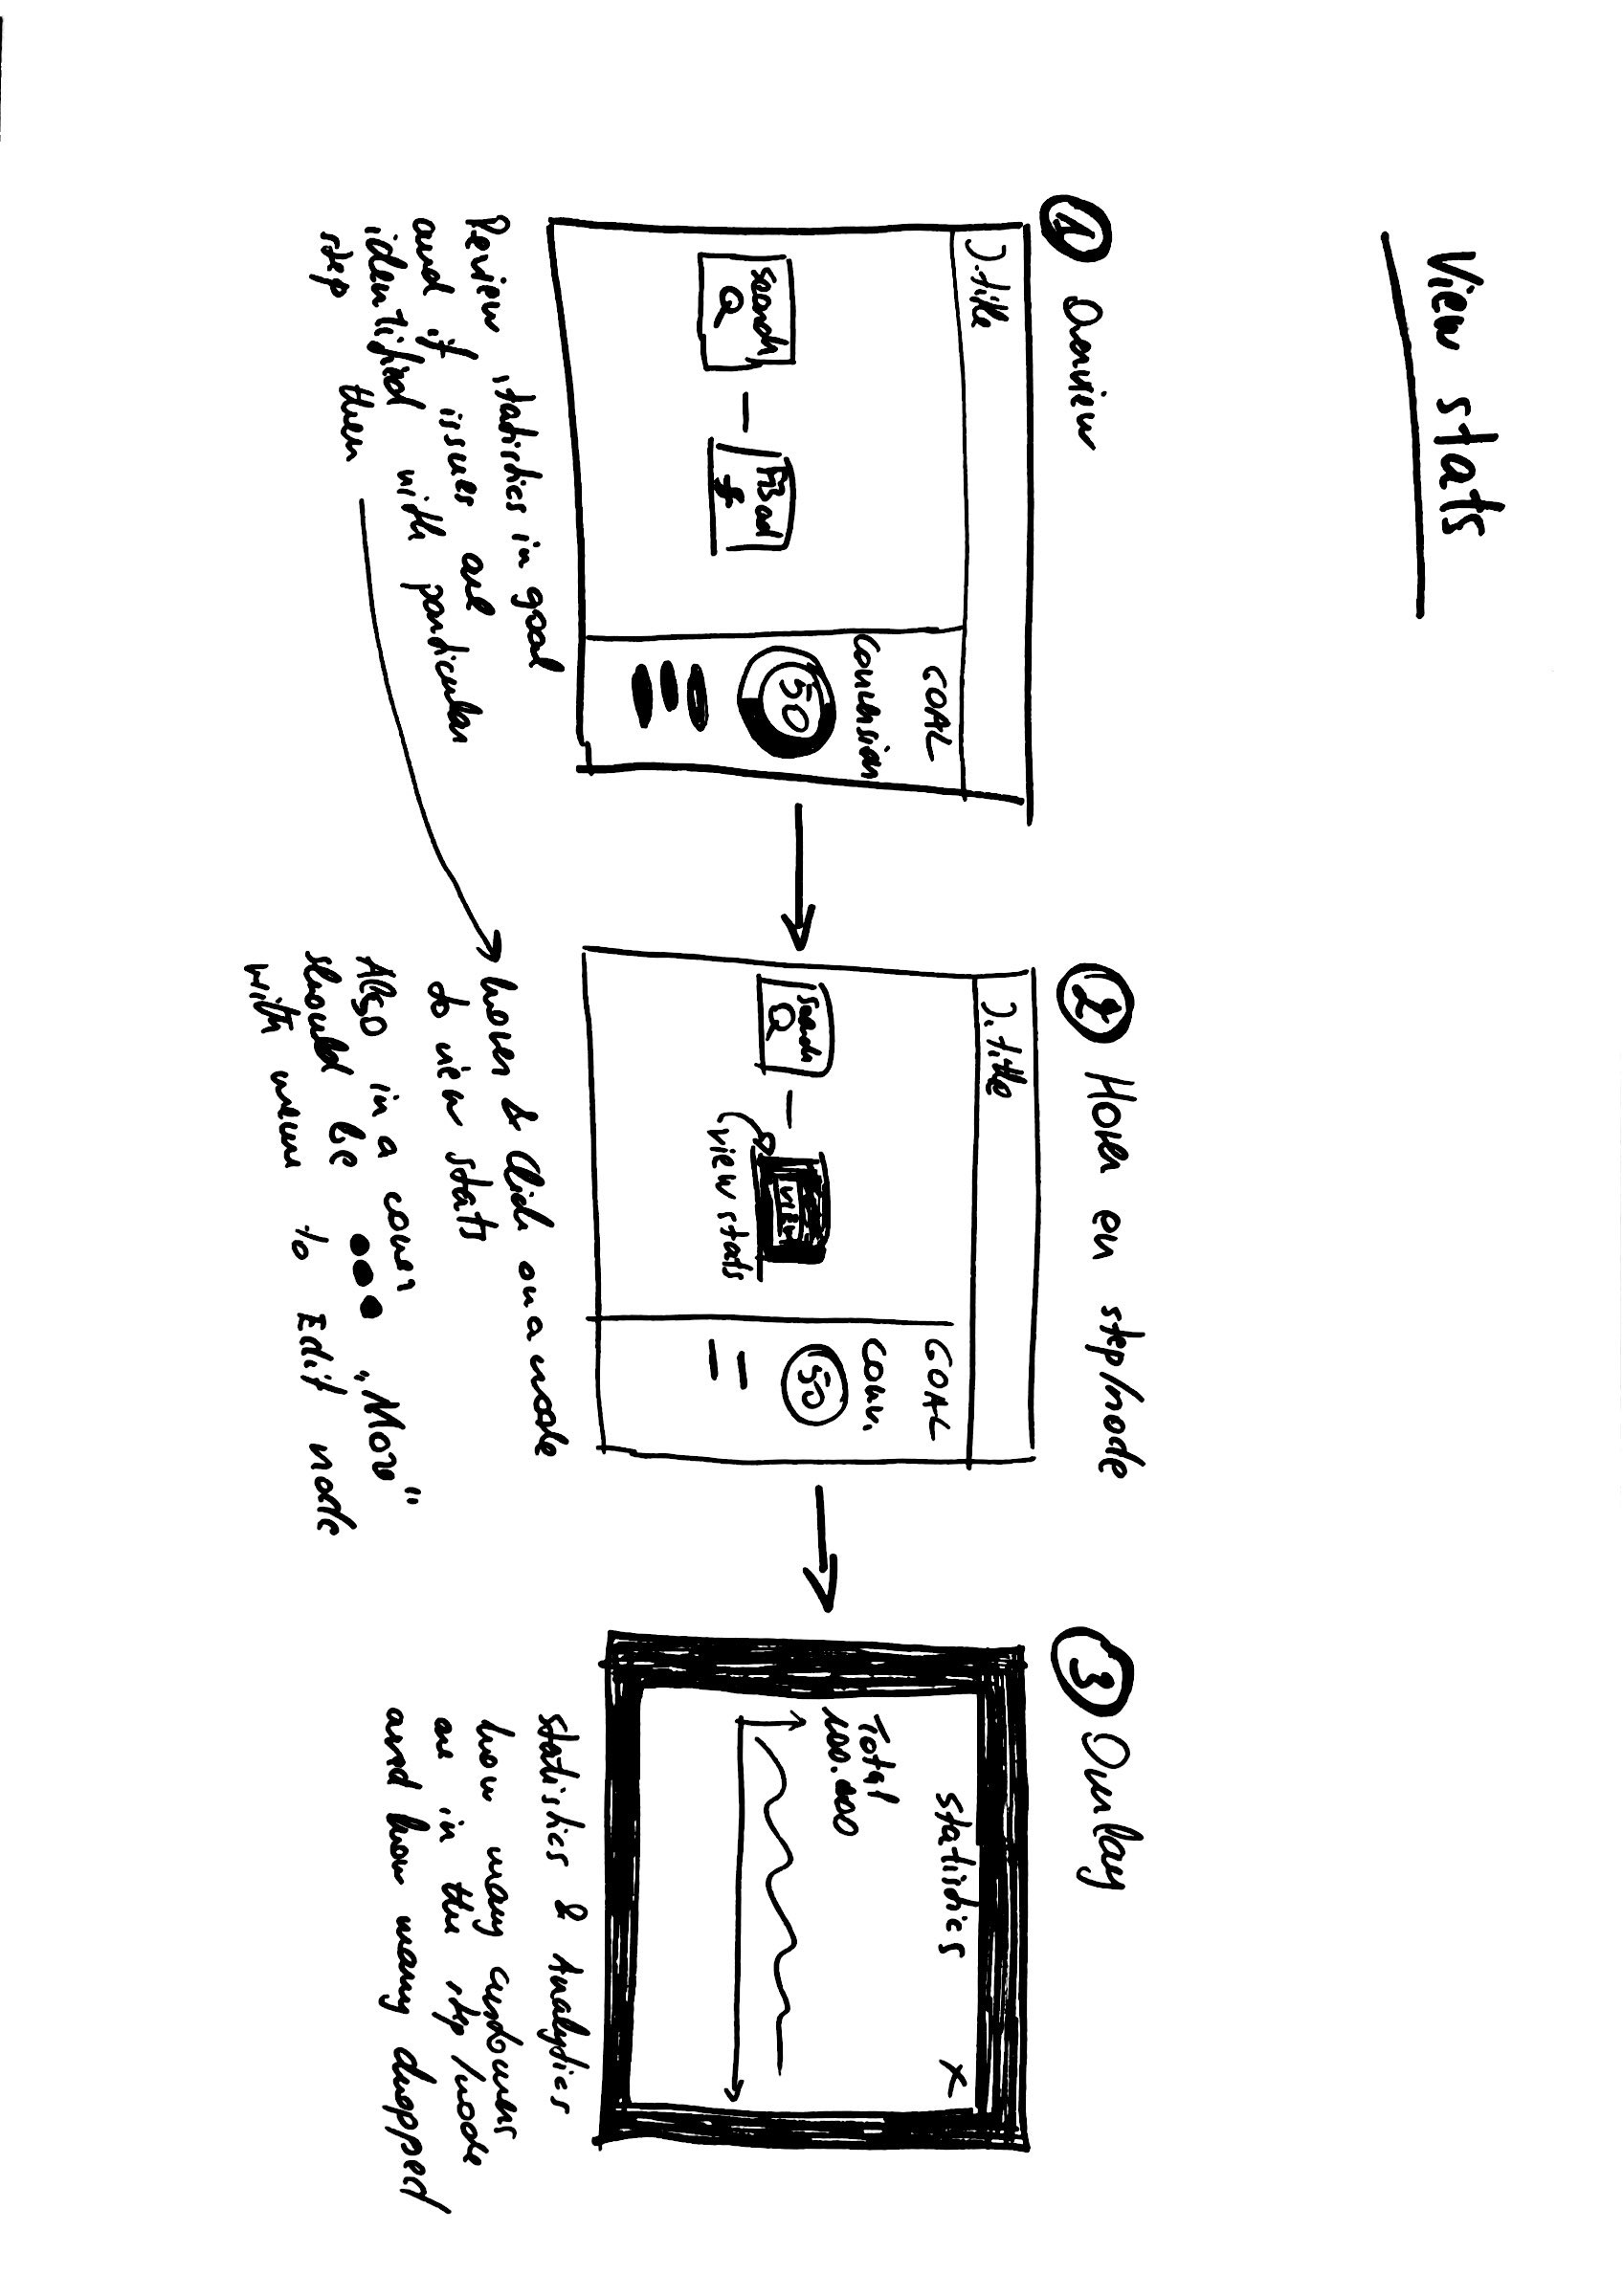 View stats
1 Overview
J.title
Search
FB ad
GOAL
Conversion
50
Review statistics in goal
and if issues are
identified with particular
step then
2 Hover on step/node
J.title
Search
VIEW
view stats
GOAL
Conv.
50
hover & click on a node
to view stats
Also in a corner
should be ●●● „More"
with menu to Edit node
3 Overlay
Statistics X
Total
100.000
Statistics & Analytics
how many customers
are in the step/node
and how many dropped